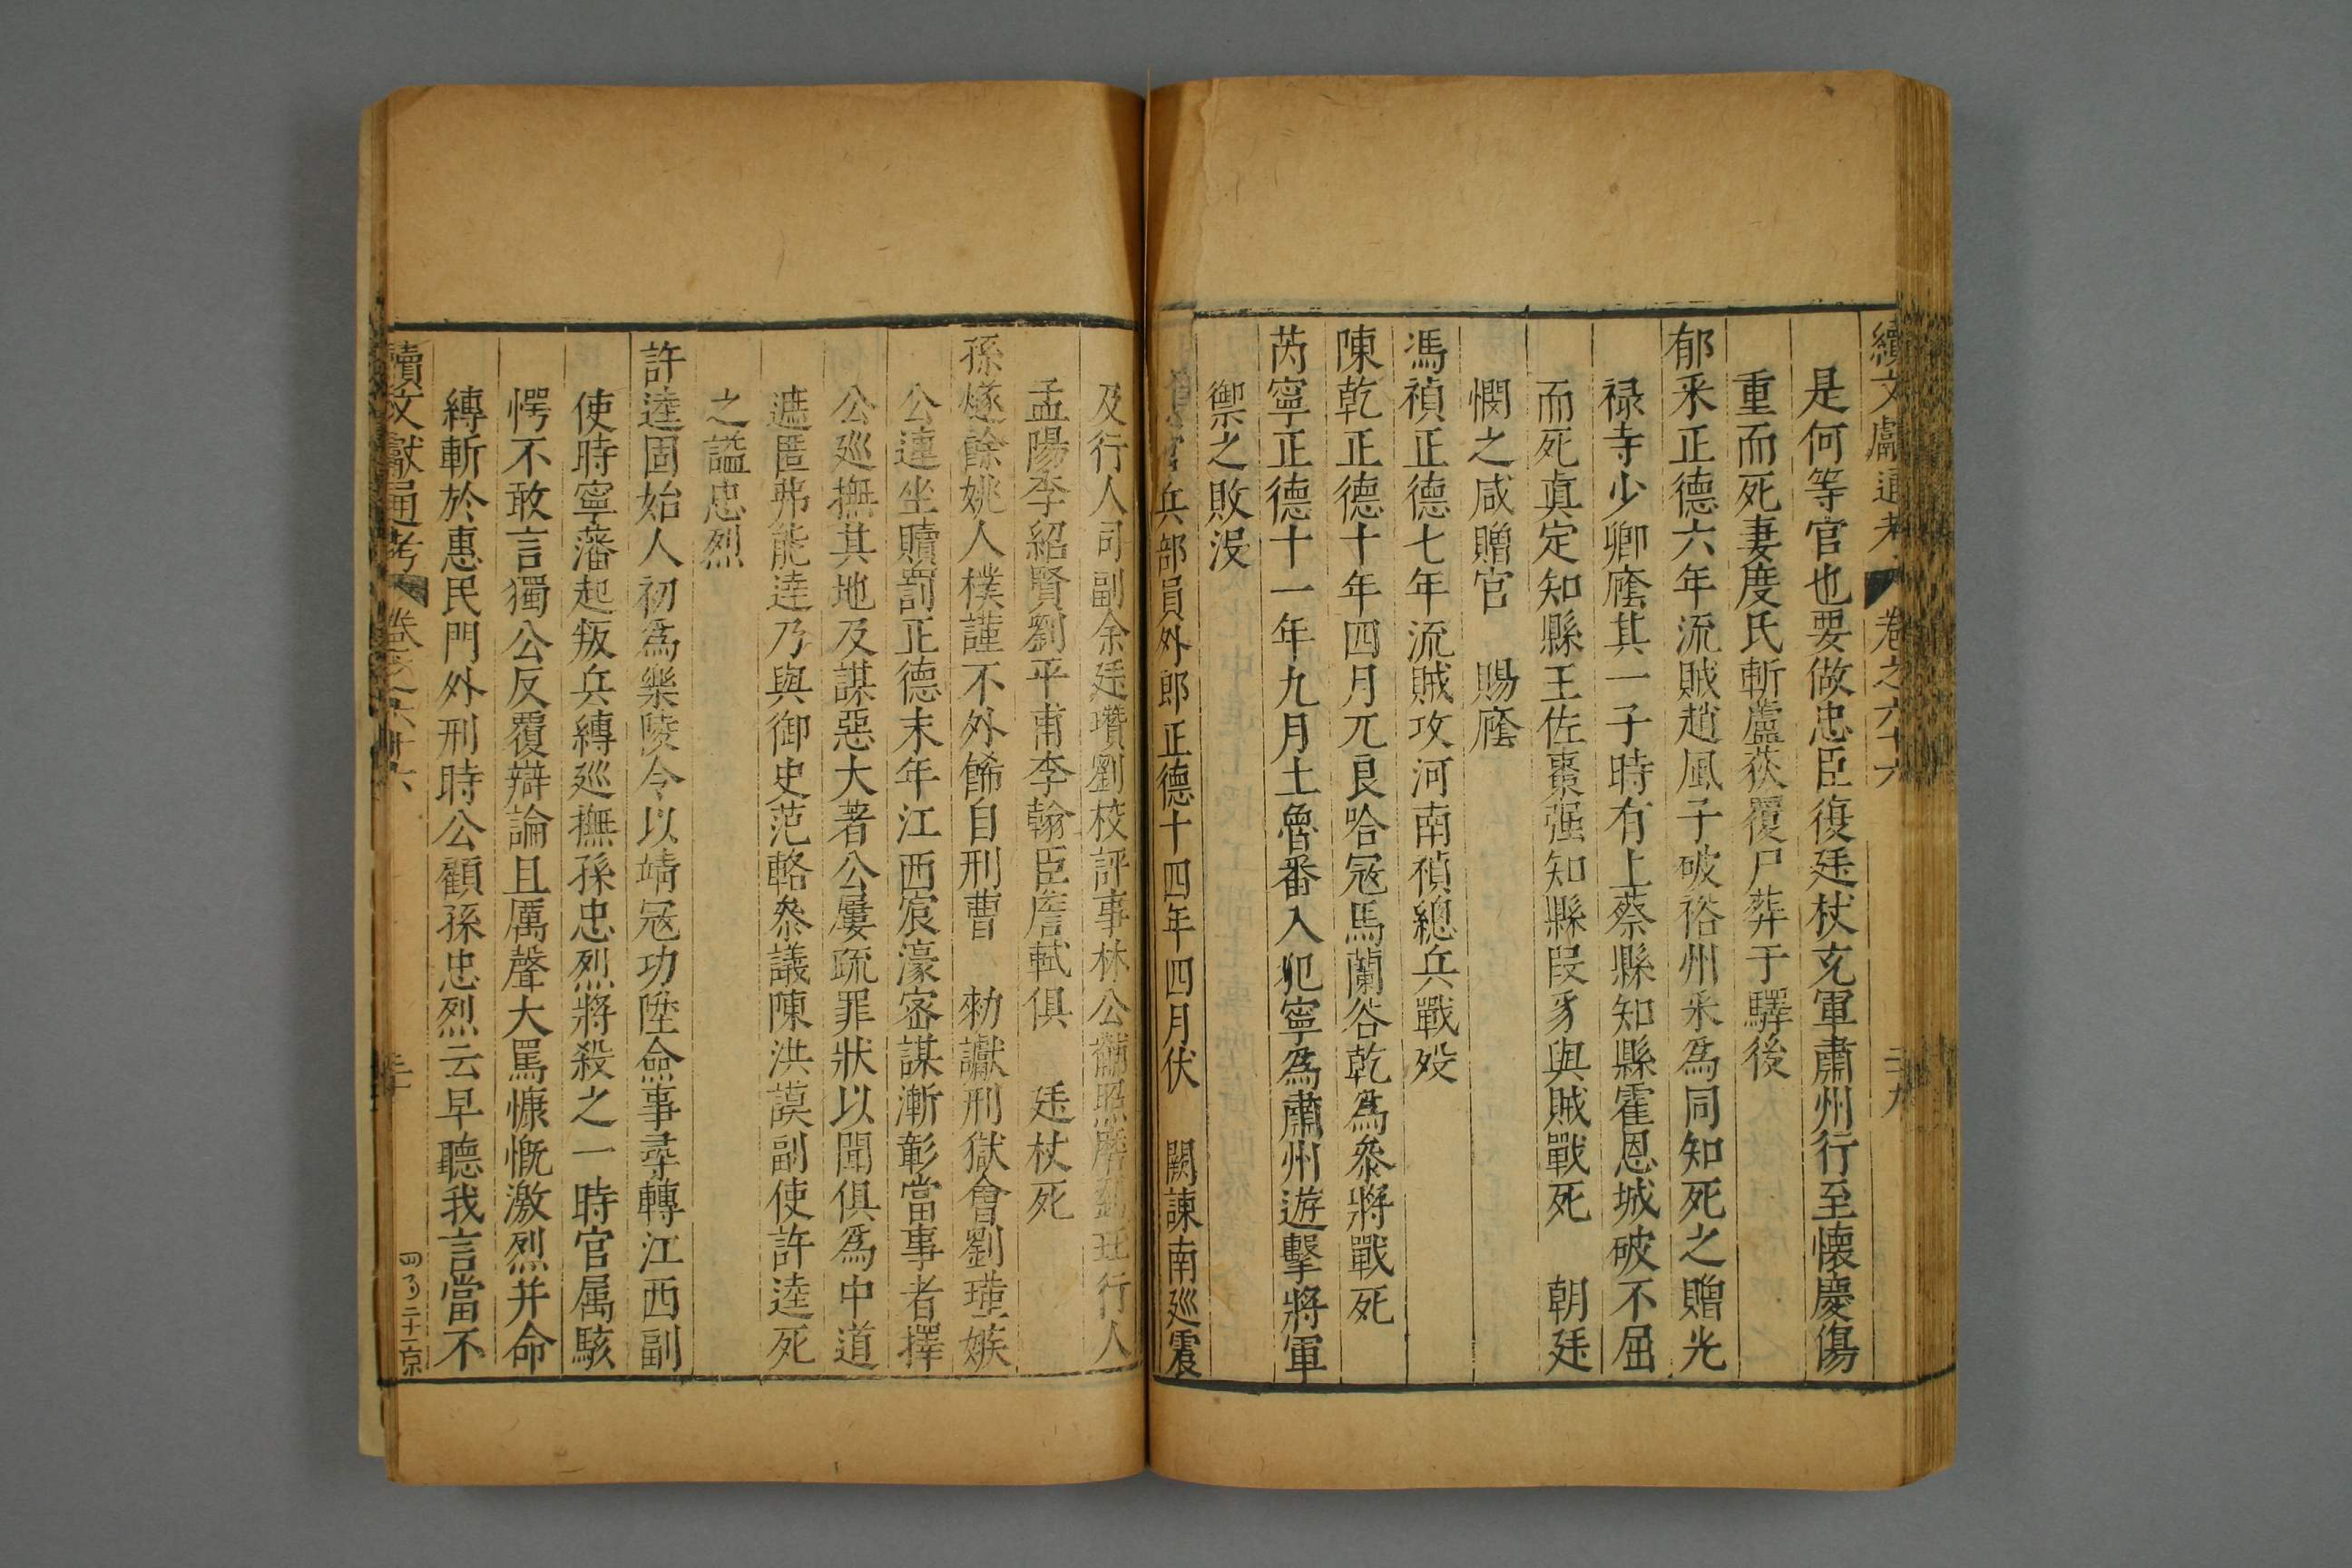 續文獻通考 卷之六十六 二十九
是何等官也要做忠臣復廷杖充軍肅州行至懷慶傷
重而死妻度氏斬蘆荻覆尸葬于驛後
郁釆正德六年流賊趙風子破裕州釆為同知死之贈光
禄寺少卿廕其一子時有上蔡縣知縣霍恩城破不屈
而死真定知縣王佐棗强知縣段豸與賊戰死 朝廷
憫之咸贈官 賜廕
馮禎正德七年流賊攻河南禎總兵戰歿
陳乾正德十年四月兀良哈冦馬蘭谷乾為叅將戰死
芮寧正德十一年九月土魯番入犯寧為肅州遊擊將軍
禦之敗沒
兵部員外郎正德十四年四月伏 闕諫南廵震
及行人司副余廷瓚劉校評事林公黼照磨劉珏行人
孟陽李紹賢劉平甫李翰臣詹軾俱 廷杖死
孫燧餘姚人樸謹不外餙自刑曹 勑讞刑獄會劉瑾嫉
公連坐贖罰正德末年江西宸濠宻謀漸彰當事者擇
公廵撫其地及謀惡大著公屢疏罪狀以聞俱為中道
遮匿弗能達乃與御史范輅叅議陳洪謨副使許逵死
之謚忠烈
許逵固始人初為樂陵令以靖冦功陞僉事尋轉江西副
使時寧藩起叛兵縛廵撫孫忠烈將殺之一時官属駭
愕不敢言獨公反覆辯論且厲聲大罵慷慨激烈并命
縛斬於惠民門外刑時公顧孫忠烈云早聽我言當不
續文獻通考 卷之六十六 三十